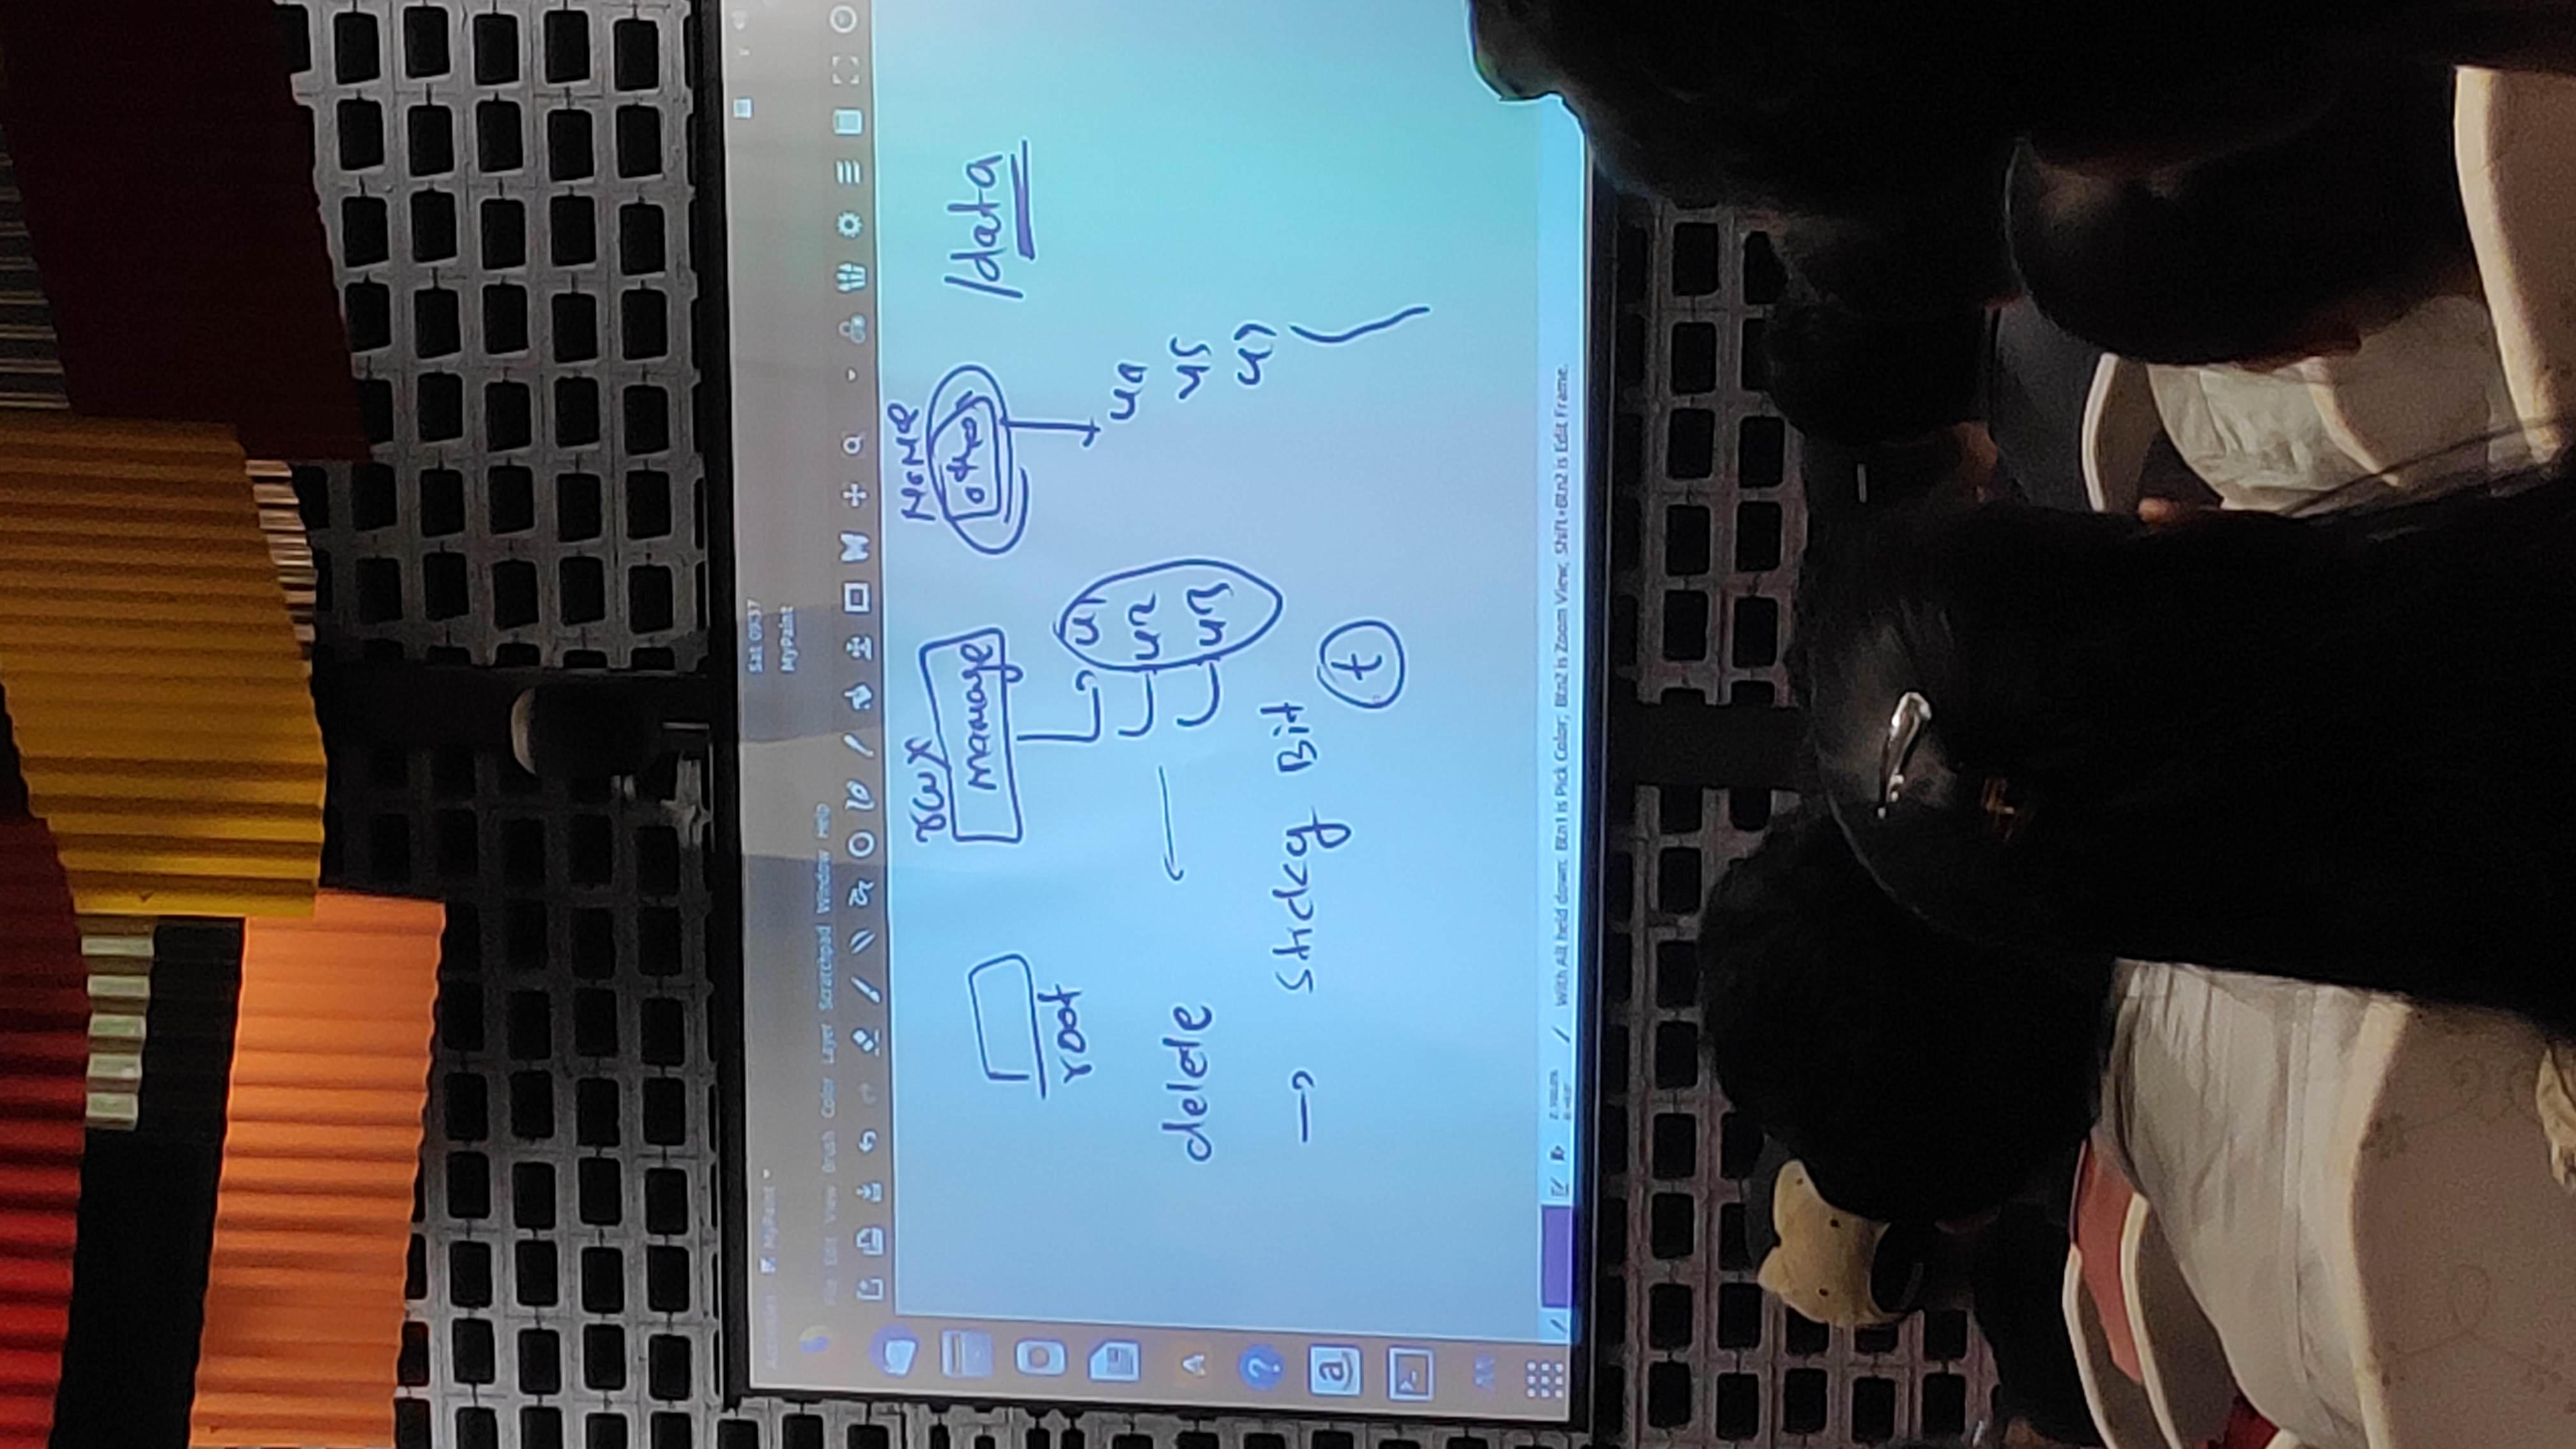 Activities MyPaint
Sat 09:37
MyPaint
File Edit View Brush Color Layer Scratchpad Window Help
rwx
None
Manage
/data
root
u1
u2
u3
u5
delete
→ Sticky Bit
t
a
A
?
With Alt held down: Btn1 is Pick Color; Btn2 is Zoom View; Shift+Btn2 is Edit Frame.